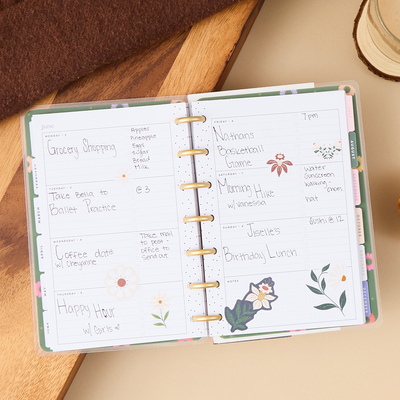 MONDAY
Grocery Shopping
Apples
Pineapple
Eggs
Sugar
Bread
Milk
TUESDAY
Take Bella to
Ballet Practice
@ 3
WEDNESDAY
Coffee date
w/ Cheyanne
Take mail
to post
office to
send out
THURSDAY
Happy Hour
w/ Girls
FRIDAY
Nathan's
Basketball
Game
7pm
SATURDAY
Morning Hike
w/ Vanessa
Water
Sunscreen
hat
SUNDAY
Jiselle's
Birthday Lunch
@ 12
NOTES